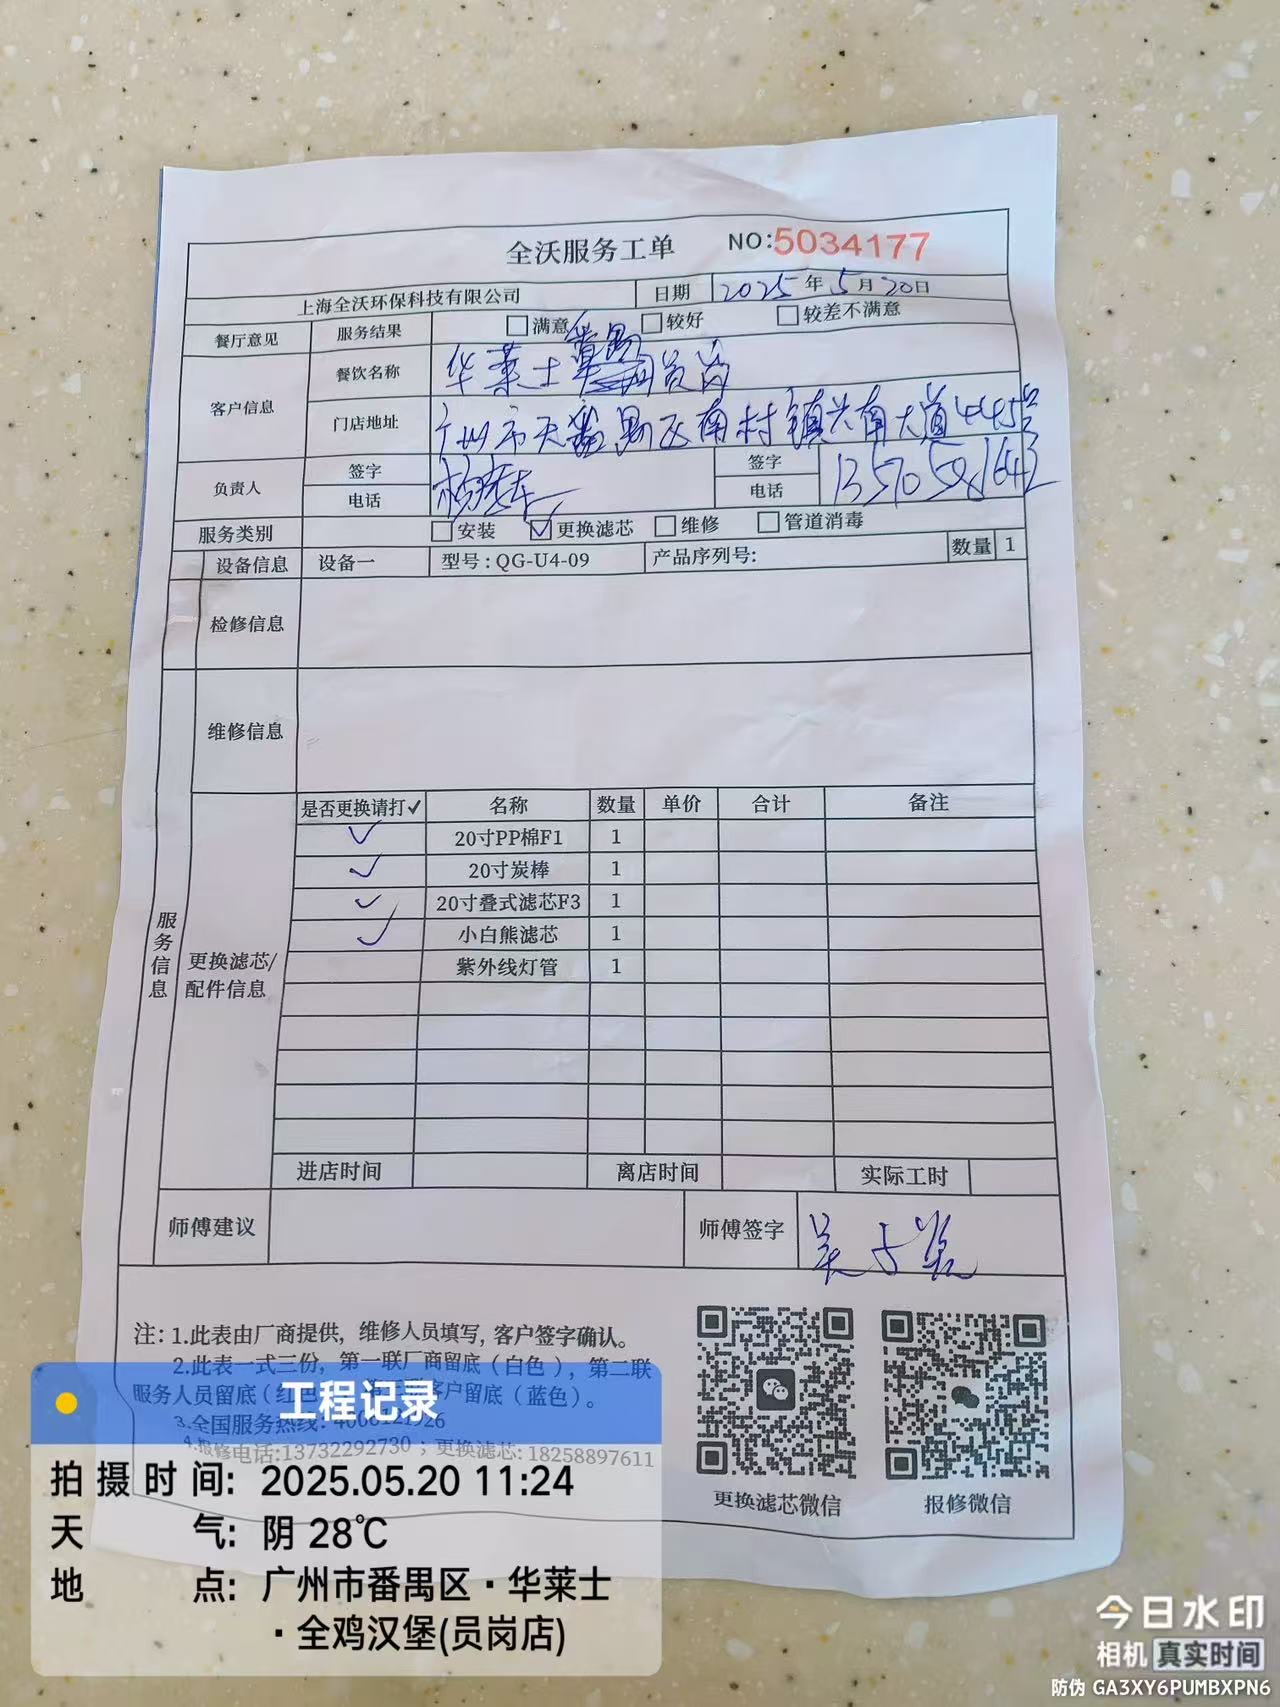 全沃服务工单 NO:5034177
上海全沃环保科技有限公司 日期 2025年5月20日
餐厅意见 服务结果 满意 较好 较差不满意
客户信息 餐饮名称 华莱士番禺员岗
门店地址 广州市天番禺区南村镇兴南大道445号
负责人 签字 签字
电话 电话 13570581642
服务类别 安装 ✓更换滤芯 维修 管道消毒
设备信息 设备一 型号:QG-U4-09 产品序列号: 数量 1
检修信息
维修信息
服务信息
更换滤芯/配件信息
是否更换请打✓ 名称 数量 单价 合计 备注
✓ 20寸PP棉F1 1
✓ 20寸炭棒 1
✓ 20寸叠式滤芯F3 1
✓ 小白熊滤芯 1
紫外线灯管 1
进店时间 离店时间 实际工时
师傅建议 师傅签字
注:1.此表由厂商提供,维修人员填写,客户签字确认。
2.此表一式三份,第一联厂商留底(白色),第二联
服务人员留底(红色 第三联客户留底(蓝色)。
3.全国服务热线:4008121926
4.报修电话:13732292730;更换滤芯:18258897611
更换滤芯微信 报修微信
工程记录
拍摄时间:2025.05.20 11:24
天气:阴 28℃
地点:广州市番禺区·华莱士
·全鸡汉堡(员岗店)
今日水印
相机 真实时间
防伪 GA3XY6PUMBXPN6